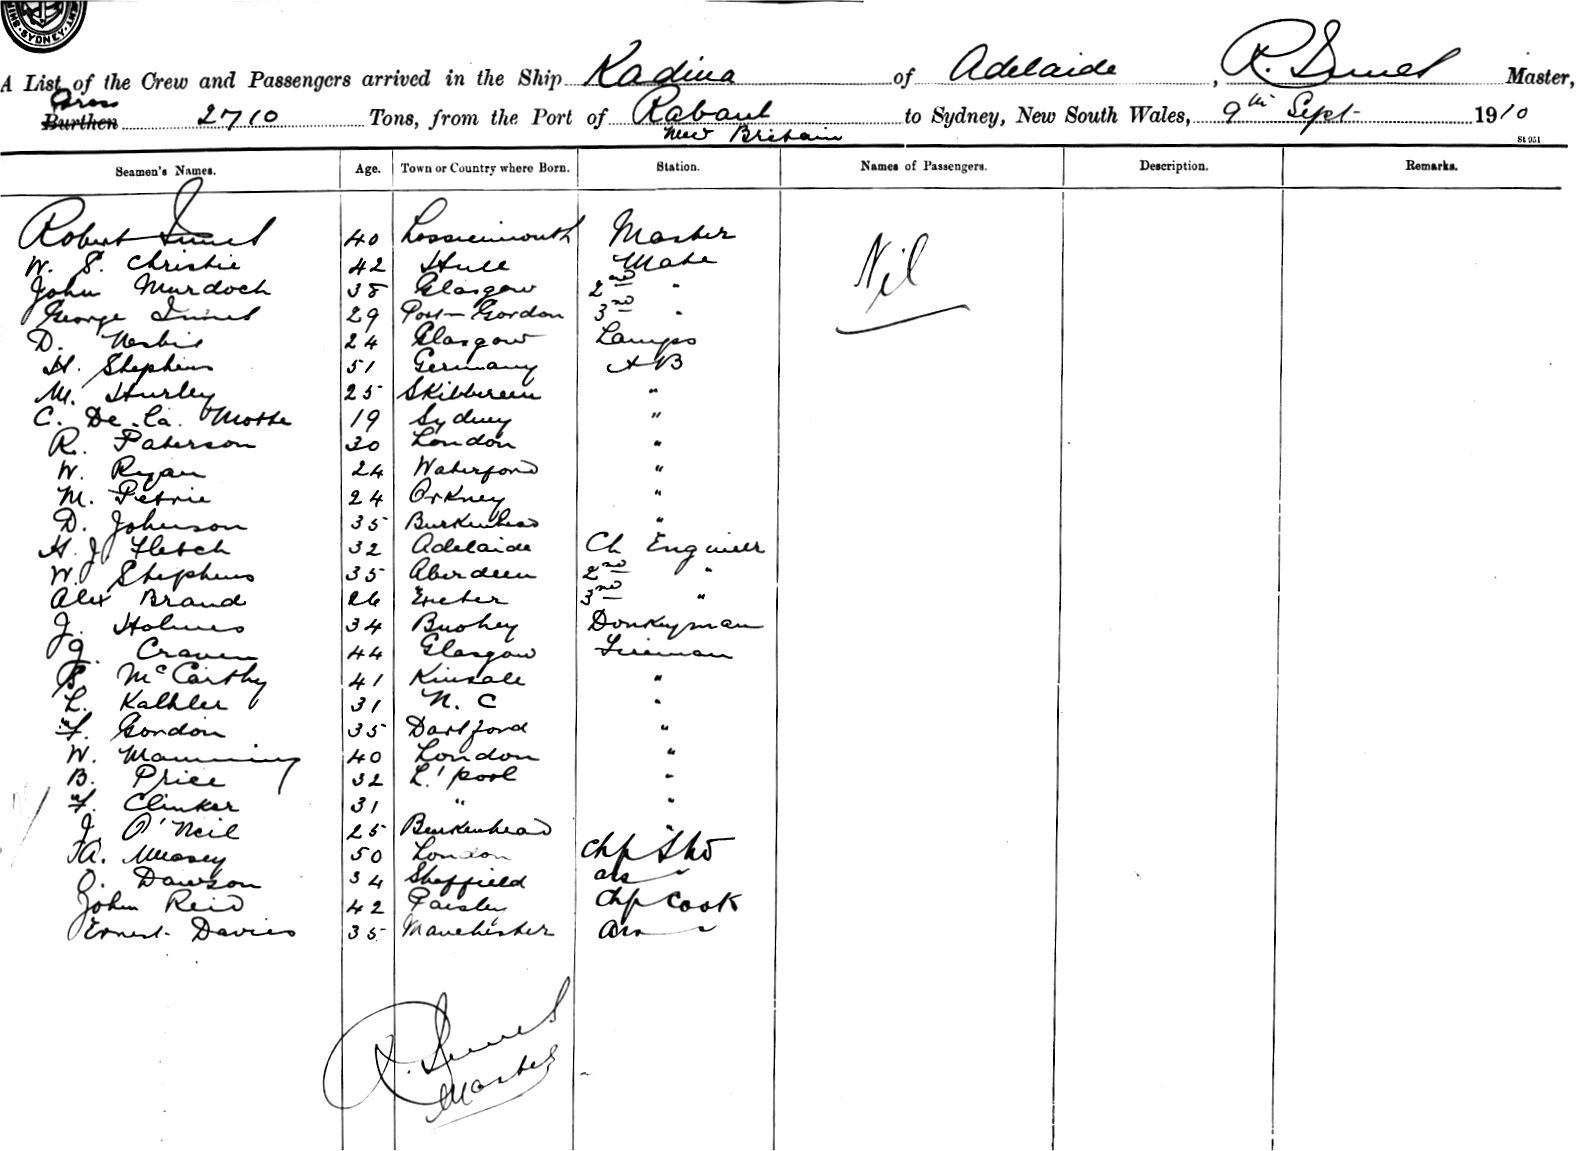 SYDNEY
A List of the Crew and Passengers arrived in the Ship Kadina of Adelaide, R. Innes Master,
Gross Burthen 2710 Tons, from the Port of Rabaul to Sydney, New South Wales, 9th Sept 1910
New Britain
St 951
Seamen's Names. Age. Town or Country where Born. Station. Names of Passengers. Description. Remarks.
Robert Innes 40 Lossiemouth Master Nil
W. S. Christie 42 Hull Mate
John Murdoch 38 Glasgow 2nd "
George Innes 29 Port Gordon 3rd "
D. 24 Glasgow Lamps
H. Stephens 51 Germany AB
M. Hurley 25 Skibbereen "
C. De La Motte 19 Sydney "
R. Paterson 30 London "
W. Ryan 24 Waterford "
M. Petrie 24 Orkney "
D. Johnson 35 Burkenhead "
H. J. Fletch 32 Adelaide Ch Engineer
W. Stephens 35 Aberdeen 2nd "
Alex Brand 26 Exeter 3rd "
J. Holmes 34 Bushey Donkeyman
J. Craven 44 Glasgow Fireman
McCarthy 41 Kinsale "
L. Kathler 31 N. C "
F. Gordon 35 Dartford "
W. Manning 40 London "
B. Price 32 L'pool "
F. Clinker 31 " "
J. O'Neil 25 Birkenhead "
A. Measey 50 London Chf Std
J. Dawson 34 Sheffield ass "
John Reid 42 Paisley Chf Cook
Ernest Davies 35 Manchester Ass "
R. Innes
Master